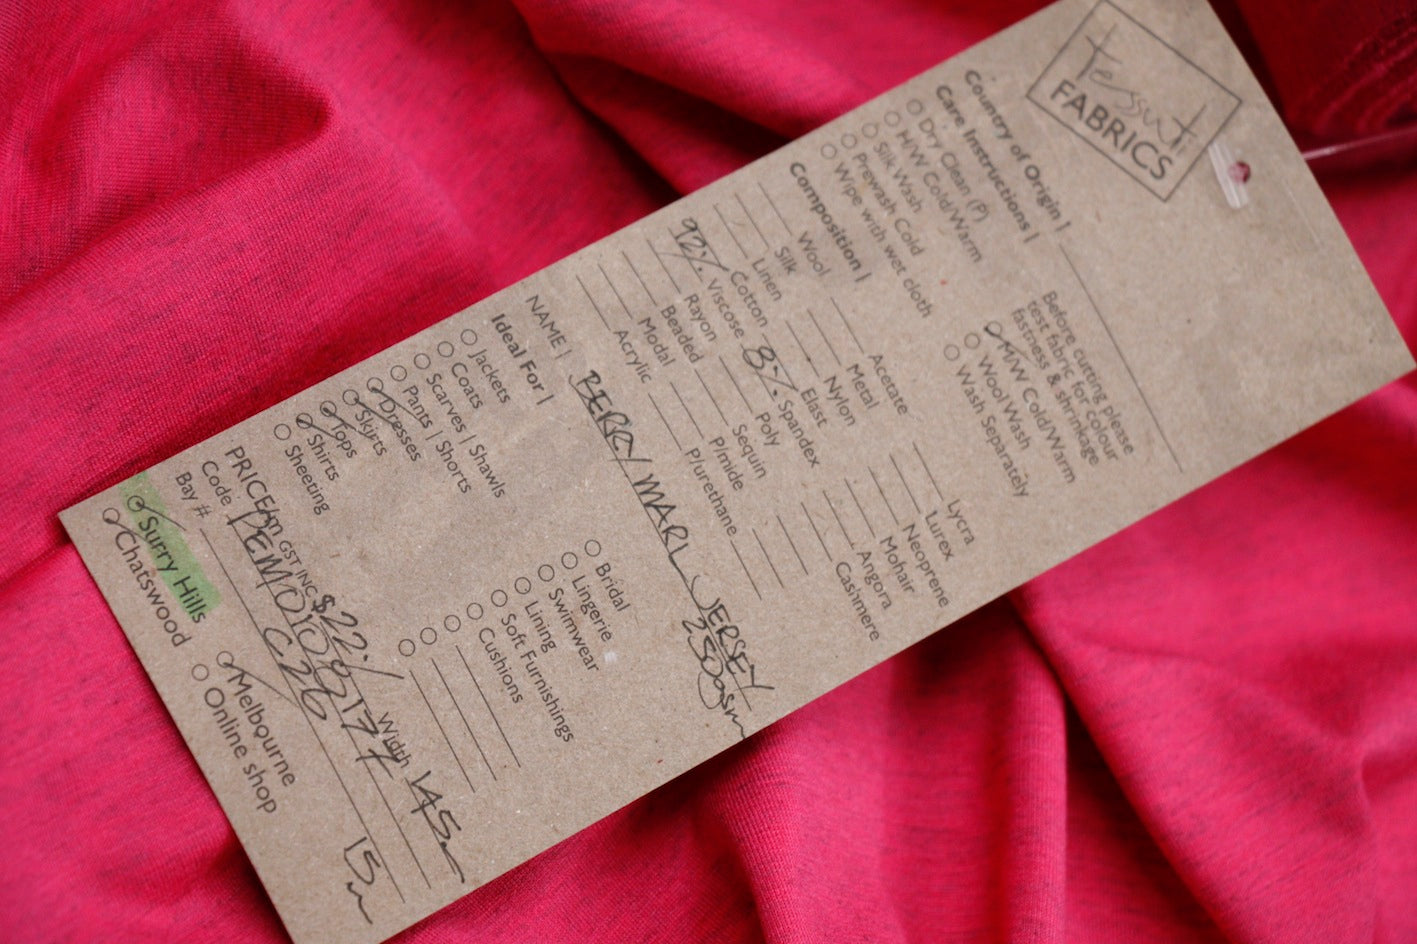 Tessuti
FABRICS
Country of Origin |
Care Instructions |
Dry Clean (P)
H/W Cold/Warm
Silk Wash
Prewash Cold
Wipe with wet cloth
Before cutting please
test fabric for colour
fastness & shrinkage
M/W Cold/Warm
Wool Wash
Wash Separately
Composition |
Wool Acetate Lycra
Silk Metal Lurex
Linen Nylon Neoprene
Cotton Elast Mohair
92% Viscose 8% Spandex Angora
Rayon Poly Cashmere
Beaded Sequin
Modal P/mide
Acrylic P/urethane
NAME | BERRY MARL JERSEY
250gsm
Ideal For |
Jackets
Coats
Scarves | Shawls
Pants | Shorts
Dresses
Skirts
Tops
Shirts
Sheeting
Bridal
Lingerie
Swimwear
Lining
Soft Furnishings
Cushions
PRICE/m GST INC $22-/ Width 145cm
Code
Bay # C26 15m
Surry Hills
Chatswood
Melbourne
Online shop